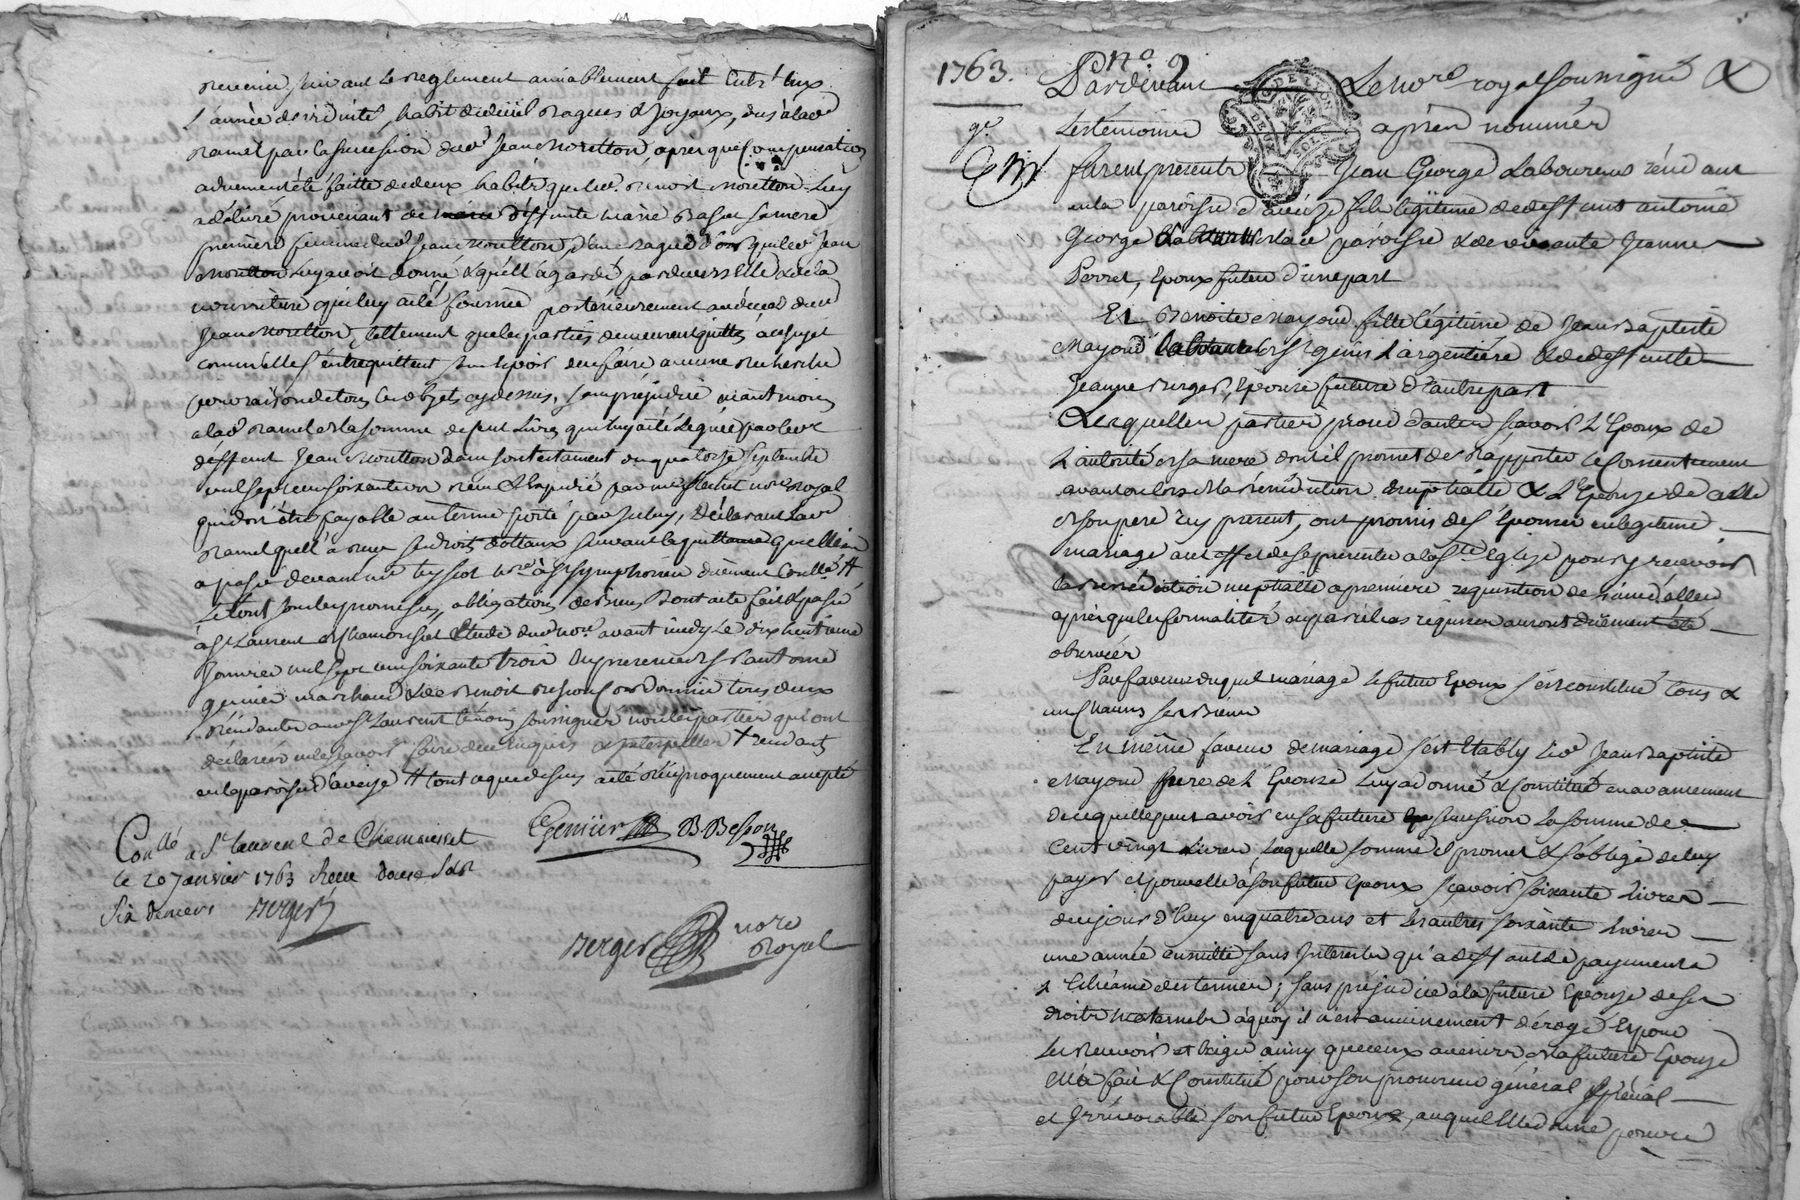 revenir suivant le reglement amiablement fait entr'eux
L'année de viduité, habit de deüil bagues & joyaux, dus à lad.
Ramel par la succession dud. Jean Moretton, apres que Compensation
a été faitte de deux habits que led. Benoit Moretton luy
a délivré provenant de deffunte Marie sa mere
premiere femme dud. Jean Moretton, d'une bague d'or que led. Jean
Moretton luy avoit donné & qu'ell'a gardé pardevers elle & de la
nourriture qui luy a été fournie posterieurement au déces dud.
Jean Moretton, tellement que les parties demeurent quittes à ce sujet
comm'elles s'entrequittent sans espoir d'en faire aucune recherche
pour raison de tous les objets cy dessus, sans préjudice néantmoins
a lad. Ramel de la somme de cent livres qui luy a été leguée par led.
deffunt Jean Moretton dans son testament du quatorze septembre
mil sept cent soixante un receu & Expedié par me notre royal
qui doit être payable au terme porté par icelui, déclarant lad.
Ramel quell'a receu ses droits dottaux suivant la quittance quelle en
a passé devant me notre à St Symphorien duëment Conllé #
le tout sous les promesses, obligations de biens dont acte fait & passé
à St Laurent de Chamousset Etude dud. notre avant midy le dix huitieme
Janvier mil sept cent soixante trois en presence de Sr antoine
Genier marchand & de Benoit Besson Cordonnier tous deux
résidants aud. St Laurent témoins soussignés non les parties qui ont
déclaré ne le sçavoir faire de ce enquis & interpellées + residant
en la paroisse d'aveise # tout ce que dessus a été réciproquement accepté
Genier B. Besson
Conllé a St Laurent de Chamousset
le 20 janvier 1763 Receu douze sols
six deniers Berger
Berger notre
Royal
1763. Pno. 2
Pardevant Le notre royal soussigné &
Les témoins après nommés
furent présents Jean George Laboureur résidant
en la paroisse d'aveize fils légitime de deffunt antoine
George de lad. paroisse & de vivante Jeanne
Perret, Epoux futur d'une part
Et Benoite Mayoud fille légitime de Jean Baptiste
Mayoud de St Genis L'argentiere & de deffunte
Jeanne Berger, Epouse future d'autre part
Lesquelles parties procedantes sçavoir L'Epoux de
L'autorité de sa mere dont il promet de rapporter le consentement
avant ou lors de la bénédiction nuptialle & L'Epouse de celle
de son pere icy présent, ont promis de s'Epouser en legitime
mariage a cet effet de se presenter a la Ste Eglise pour y recevoir
la bénédiction nuptialle a premiere requisition de l'un d'elles
après que les formalités en pareil cas requises auront duëment été
observées
En faveur duquel mariage le futur Epoux s'est constitué tous &
un chacuns ses biens
En même faveur de mariage s'est Etably led. Jean Baptiste
Mayoud pere de L'Epouse luy a donné & constitué en avancement
de ce quelle peut avoir en sa future succession la somme de
Cent vingt livres laquelle somme il promet & s'oblige de luy
payer et pour elle à son futur Epoux sçavoir soixante livres
de ce jour d'huy en quatre ans et les autres soixante livres
une année ensuitte sans interests qu'a deffaut de payement
à l'échéance des termes; sans préjudice à la future Epouse de ses
droits maternels à quoy il n'est aucunement dérogé Et pour
les recevoir et Exiger ainsy que ceux avenir de la future Epouse
Elle fait & Constitue pour son procureur général spécial
et irrévocable son futur Epoux, auquel Elle donne pouvoir